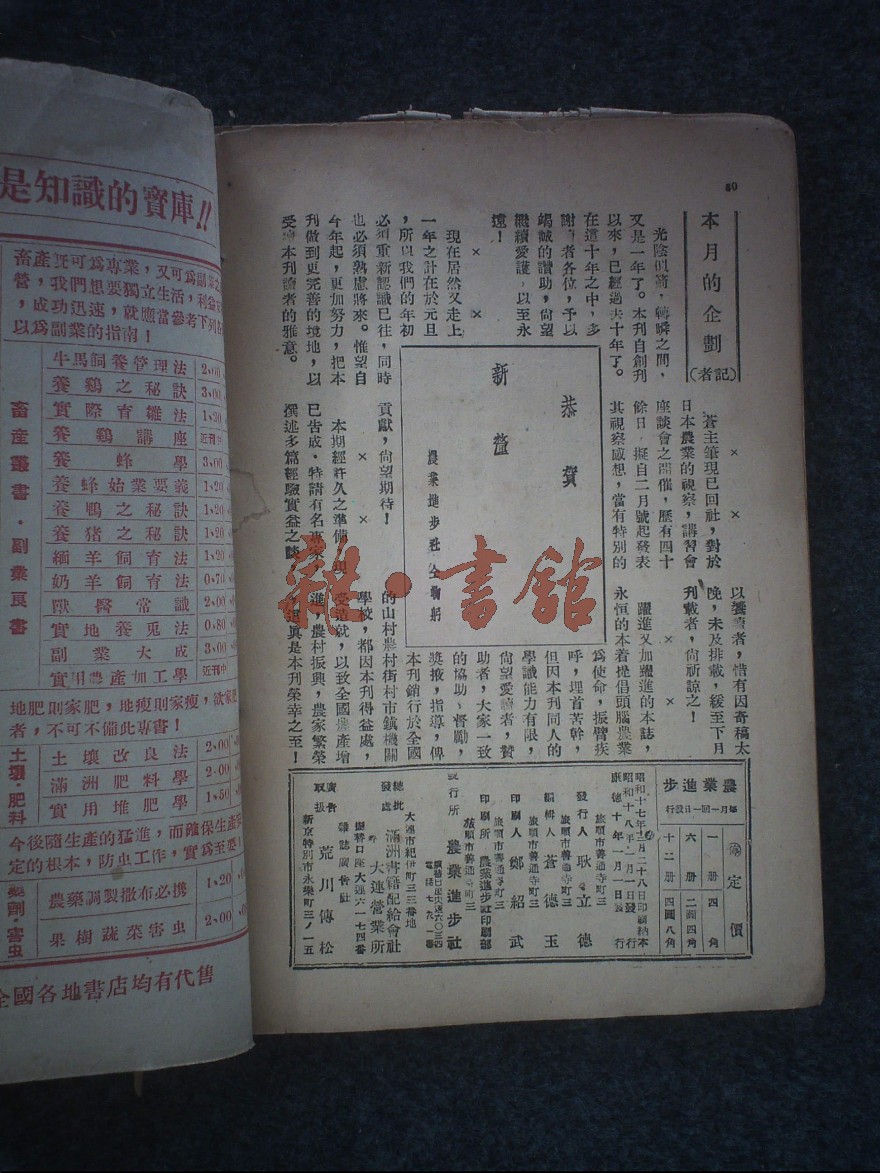 80
本月的企劃
(記者)
光陰似箭,轉瞬之間,
又是一年了。本刊自創刊
以來,已經過去十年了。
在這十年之中,多
謝讀者各位,予以
竭誠的讚助,尙望
繼續愛護,以至永
遠!
× ×
現在居然又走上
一年之計在於元旦
,所以我們的年初
必須重新認識已往,同時
也必須熟慮將來。惟望自
今年起,更加努力,把本
刊做到更完善的境地,以
受讀本刊讀者的雅意。
× ×
蒼主筆現已回社,對於
日本農業的視察,講習會
座談會之開催,歷有四十
餘日,擬自二月號起發表
其視察感想,當有特別的
貢獻,尙望期待!
× ×
本期經許久之準備,現
已告成,特請有名專家,
撰述多篇經驗實益之談,
以饗讀者,惜有因寄稿太
晚,未及排載,緩至下月
刊載者,尙祈諒之!
× ×
躍進又加躍進的本誌,
永恒的本着挫倡頭腦農業
爲使命,振臂疾
呼,埋首苦幹,
但因本刊同人的
學識能力有限,
尙望愛讀者,贊
助者,大家一致
的協助、督勵,
獎掖,指導,俾
本刊銷行於全國
的山村農村街村市鎮機關
學校,都因本刊得益處,
受造就,以致全國農產增
進,農村振興,農家繁榮
,纔眞是本刊榮幸之至!
恭賀
新釐
農業進步社全
農業進步
每月一回一日發行
定價
一冊 四角
六冊 二圓四角
十二冊 四圓八角
昭和十七年十二月二十八日印刷納本
昭和十八年一月一日發行
康德十年一月一日發行
旅順市善通寺町三
發行人 耿立德
旅順市善通寺町三
編輯人 蒼德玉
旅順市善通寺町三
印刷人 鄭紹武
旅順市善通寺町三
印刷所 農業進步社印刷部
旅順市善通寺町三
發行所 農業進步社
電話七九一番
大連市紀伊町三三番地
總批發處 滿洲書籍配給會社
大連營業所
振替口座大連六一七四番
廣告取扱 雜誌廣告社
荒川傳松
新京特別市永樂町三ノ一五
是知識的寶庫!!
畜產旣可爲專業,又可爲副業之
營,我們想要獨立生活,利益
,成功迅速,就應當參考下列
以爲副業的指南!
畜產叢書・副業良書
牛馬飼養管理法 2.00
養鷄之秘訣 3.00
實際育雛法 1.20
養鷄講座 近刊中
養蜂學 3.00
養蜂始業要義 1.20
養鴨之秘訣 1.20
養猪之秘訣 1.20
緬羊飼育法 1.20
奶羊飼育法 0.70
獸醫常識 2.00
實地養兎法 0.80
副業大成 3.00
實用農產加工學 近刊中
地肥則家肥,地瘦則家瘦,欲家肥
者,不可不備此專書!
土壤・肥料
土壤改良法 2.00
滿洲肥料學 2.00
實用堆肥學 1.50
今後隨生產的猛進,而確保生產
定的根本,防虫工作,實爲至要!
藥劑・害虫
農藥調製撒布必携 1.20
果樹蔬菜害虫 2.00
全國各地書店均有代售
雜・書館